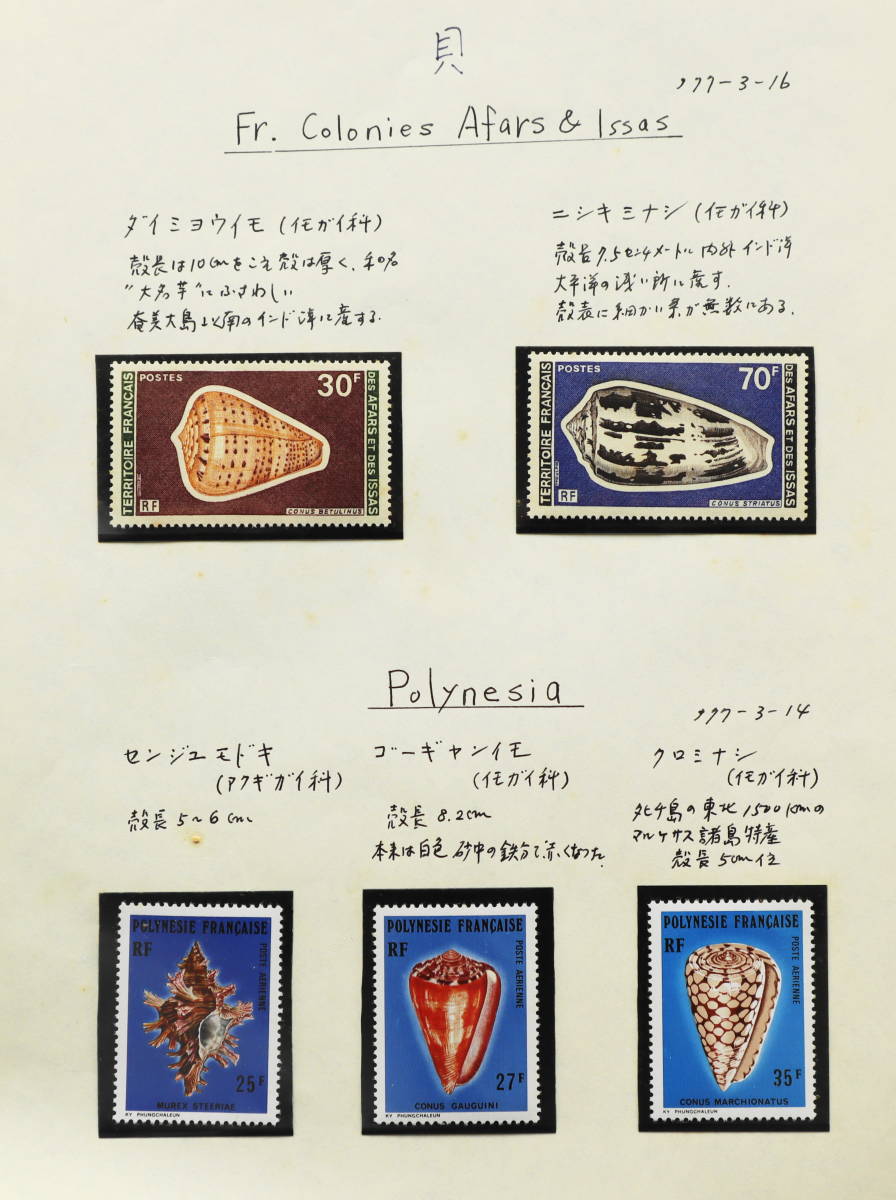 貝
'77-3-16
Fr. Colonies Afars & Issas
ダイミヨウイモ (イモガイ科)
殻長は10cmをこえ殻は厚く、和名
"大名芋"にふさわしい
奄美大島以南のインド洋に産する.
ニシキミナシ (イモガイ科)
殻長7.5センチメートル内外 インド洋
太平洋の浅い所に産す.
殻表に細かい糸が無数にある.
POSTES
30F
TERRITOIRE FRANÇAIS
DES AFARS ET DES ISSAS
RF
CONUS BETULINUS
POSTES
70F
TERRITOIRE FRANÇAIS
DES AFARS ET DES ISSAS
RF
CONUS STRIATUS
Polynesia
'77-3-14
センジュモドキ
(アクキガイ科)
殻長 5~6cm
ゴーギャンイモ
(イモガイ科)
殻長 8.2cm
本来は白色 砂中の鉄分で赤くなった.
クロミナシ
(イモガイ科)
タヒチ島の東北1500kmの
マルケサス諸島特産
殻長5cm位
POLYNESIE FRANÇAISE
RF
POSTE AERIENNE
25F
MUREX STEERIAE
KY PHUNGCHALEUN
POLYNESIE FRANÇAISE
RF
POSTE AERIENNE
27F
CONUS GAUGUINI
KY PHUNGCHALEUN
POLYNESIE FRANÇAISE
RF
POSTE AERIENNE
35F
CONUS MARCHIONATUS
KY PHUNGCHALEUN